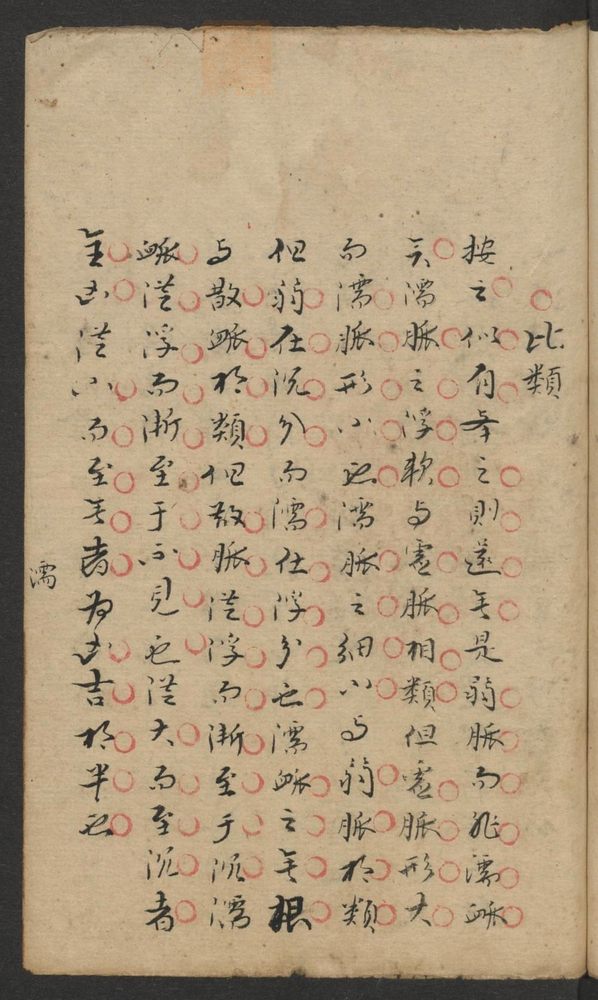 比類
按之似有举之則還无是弱脈而非濡衇
矣濡脈之浮軟与虛脈相類但虛脈形大
而濡脈形小也濡脈之細小与弱脈相類
但弱在沉分而濡在浮分也濡衇之无根
与散衇相類但散脈從浮而漸至于沉濡
衇從浮而漸至于不見也從大而至沉者
全凶從小而至无者为凶吉相半也
濡